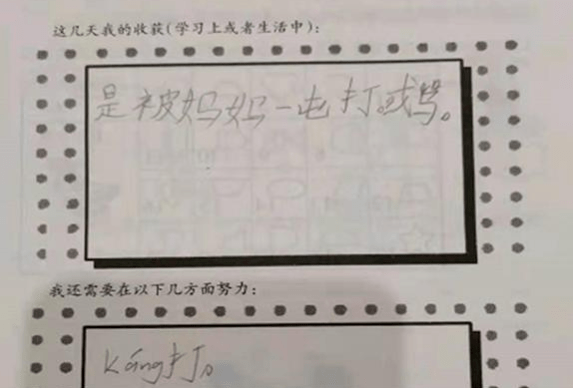 这几天我的收获(学习上或者生活中):
是被妈妈一屯打或骂。
我还需要在以下几方面努力:
Káng打。